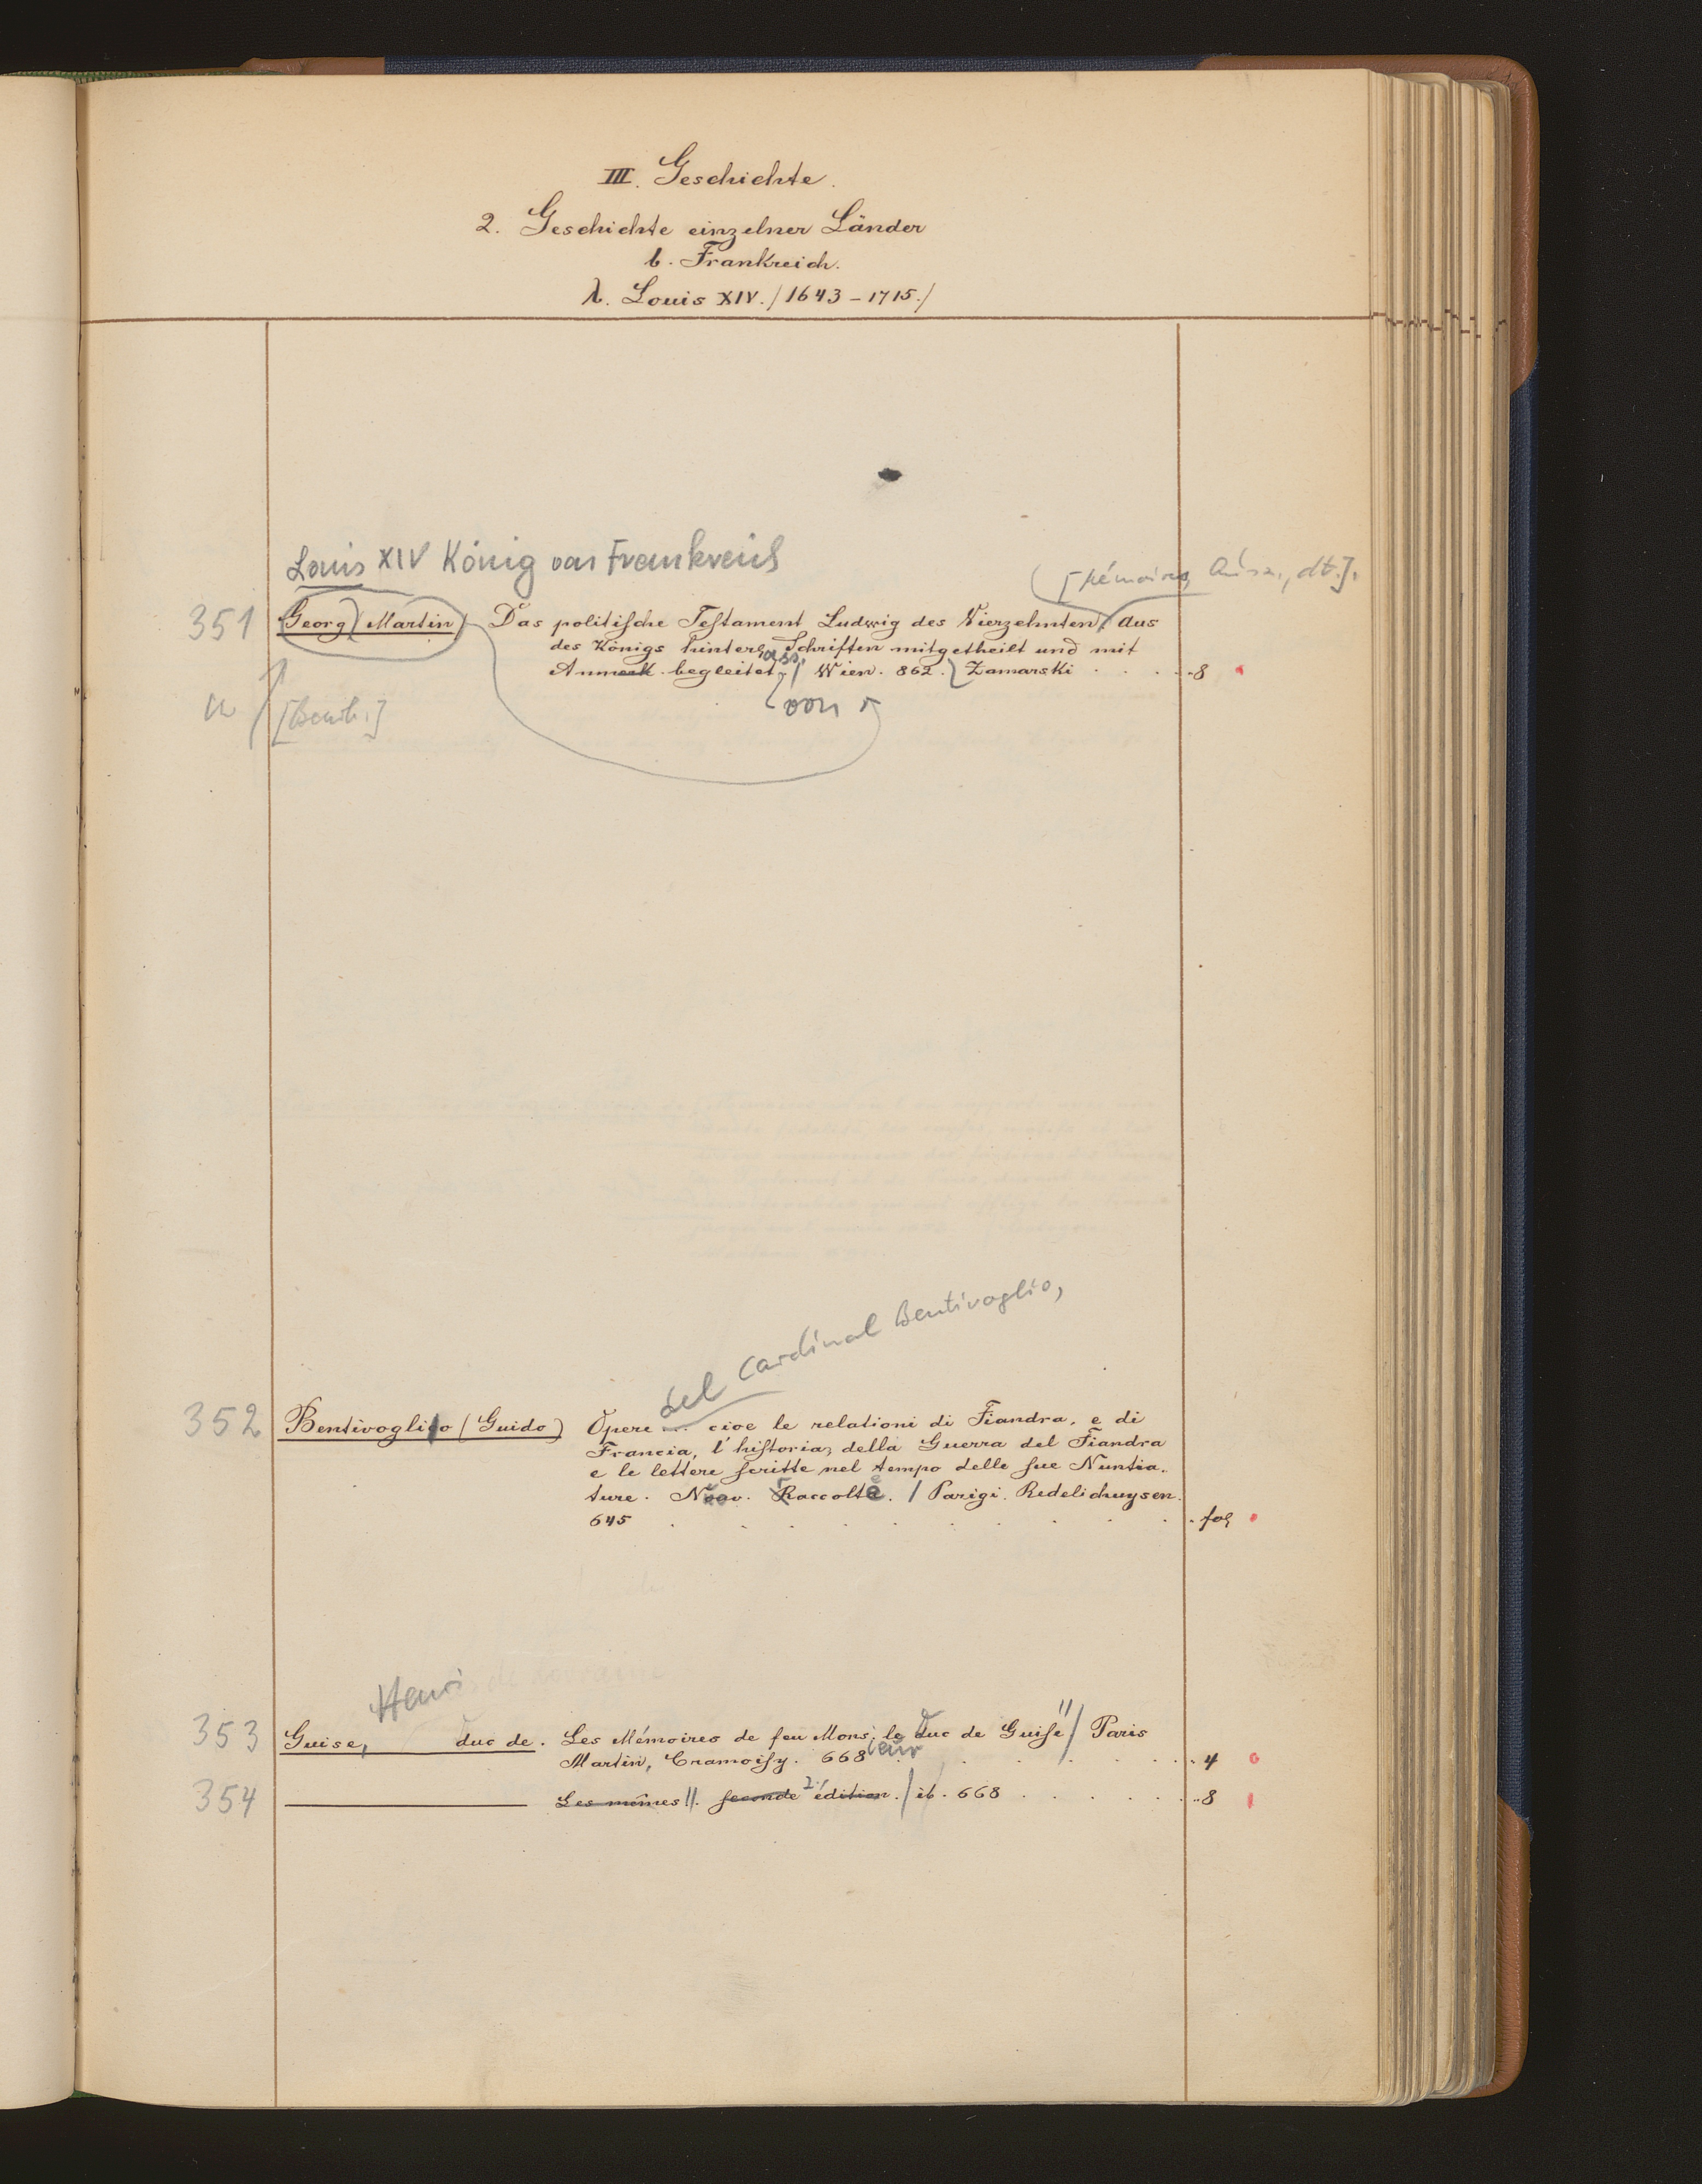 III. Geschichte.
2. Geschichte einzelner Länder
b. Frankreich.
λ. Louis XIV. /1643-1715./
Louis XIV König von Frankreich
[Mémoires, Ausz., dt.].
351 Georg (Martin) Das politische Testament Ludwig des Vierzehnten / Aus
des Königs hinterlass. Schriften mitgetheilt und mit
Anmerk. begleitet / Wien. 862. Zamarski . . . . 8
von
[Bearb.]
del Cardinal Bentivoglio,
352 Bentivoglio (Guido) Opere ... cioe le relationi di Fiandra, e di
Francia, l'historia, della Guerra del Fiandra
e le lettere scritte nel tempo delle sue Nuntia-
ture. Nov. Raccolta. / Parigi. Redelichuysen.
645 . . . . . . . . . . fol
Henri
353 Guise, duc de. Les Mémoires de feu Monsieur le Duc de Guise" / Paris
Martin, Cramoisy. 668 . . . . . . 4
354 ——— Les mêmes". seconde 2. édition. / ib. 668 . . . . . 8